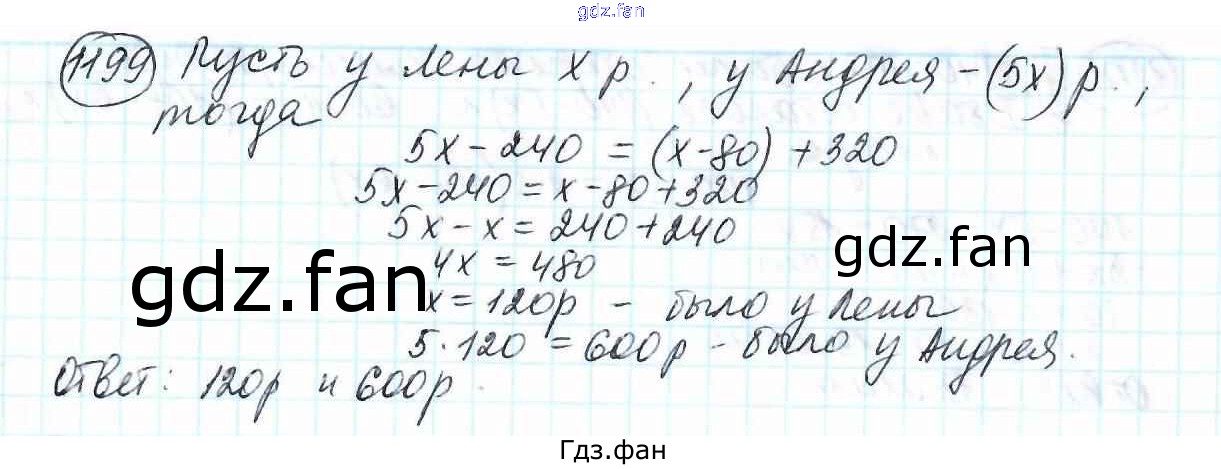 gdz.fan
1199 Пусть у Лены х р., у Андрея - (5х) р.,
тогда
5х - 240 = (х-80) + 320
5х - 240 = х - 80 + 320
5х - х = 240 + 240
gdz.fan
4х = 480
gdz.fan
х = 120р - было у Лены
5·120 = 600р - было у Андрея.
Ответ: 120р и 600р.
Гдз.фан